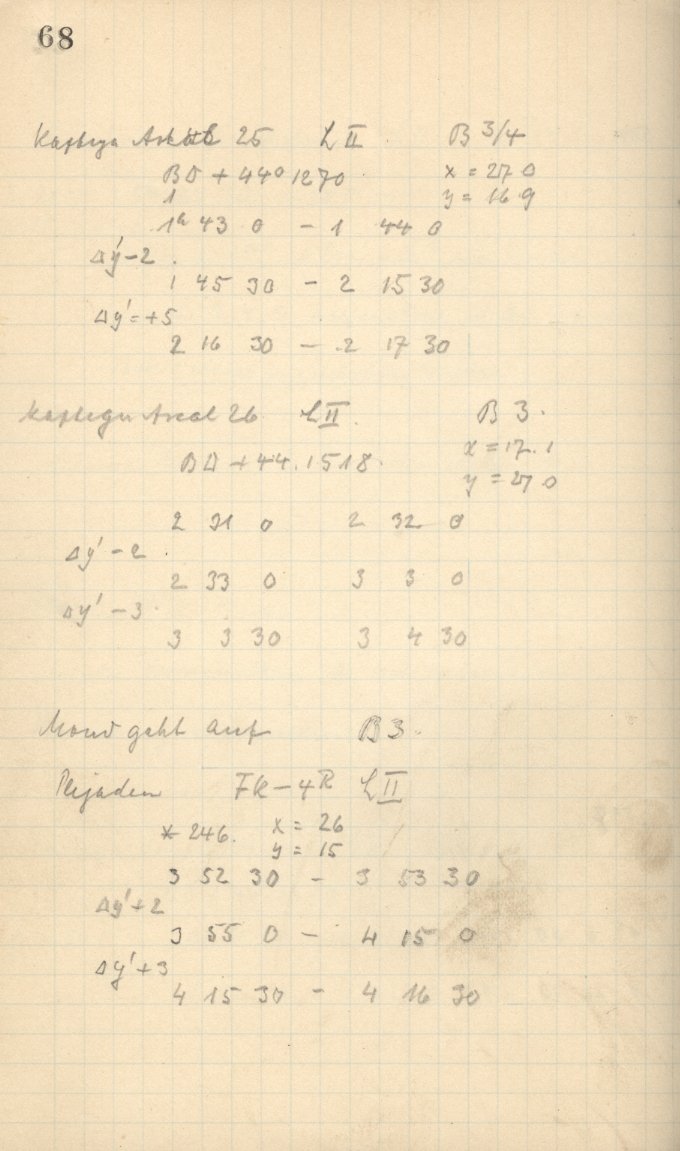 68
Kapteyn Areal 25 L II B 3/4
BD + 44° 1270 x = 27 0
1 y = 16 9
1h 43 0 - 1 44 0
Δy' - 2
1 45 30 - 2 15 30
Δy' = + 5
2 16 30 - 2 17 30
Kapteyn Areal 26 L II B 3.
BD + 44. 1518. x = 17. 1
y = 27 0
2 31 0 2 32 0
Δy' - 2
2 33 0 3 3 0
Δy' - 3
3 3 30 3 4 30
Mond geht auf B 3.
Plejaden FK - 4R L II
* 246. x = 26
y = 15
3 52 30 - 3 53 30
Δy' + 2
3 55 0 - 4 15 0
Δy' + 3
4 15 30 - 4 16 30